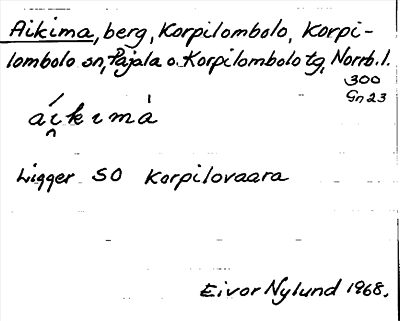 Aikima, berg, Korpilombolo, Korpi-
lombolo sn, Pajala o. Korpilombolo tg, Norrb. l.
300
Gn 23
ái̯kımȧ
Ligger SO Korpilovaara
Eivor Nylund 1968.